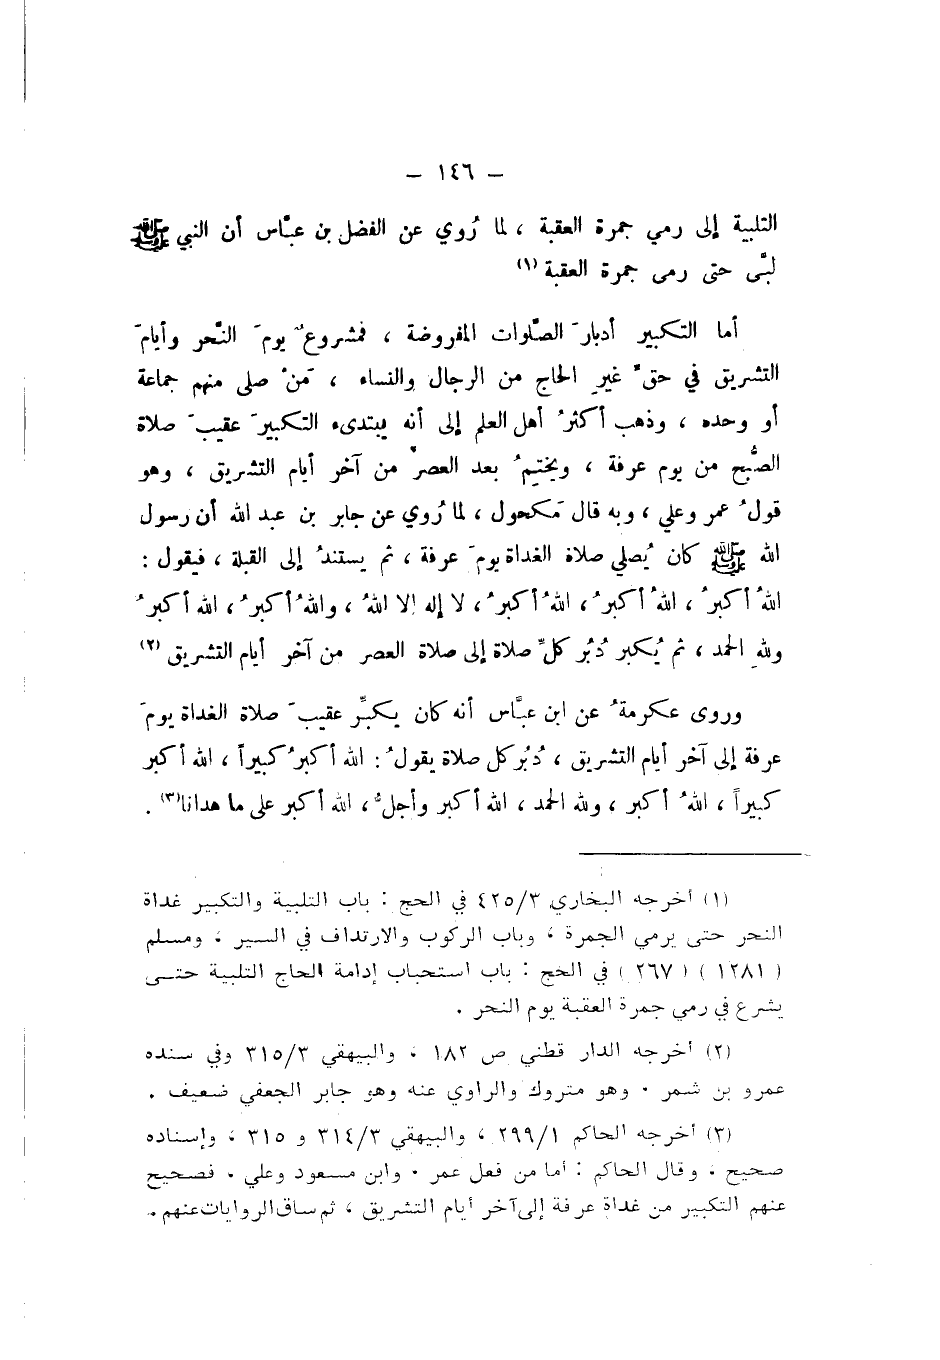 – ١٤٦ –
التلبية إلى رمي جمرة العقبة ، لما رُوي عن الفضل بن عبَّاس أن النبي ﷺ
لبَّى حتى رمى جمرة العقبة (١)
أما التكبير أدبارَ الصَّلوات المفروضة ، فمشروعٌ يومَ النَّحر وأيامَ
التشريق في حقِّ غيرِ الحاج من الرجال والنساء ، مَنْ صلى منهم جماعة
أو وحده ، وذهب أكثرُ أهل العلم إلى أنه يبتدىء التكبيرَ عقيبَ صلاة
الصُّبح من يوم عرفة ، ويختمُ بعد العصر من آخر أيام التشريق ، وهو
قولُ عمر وعلي ، وبه قال مَكحول ، لما رُوي عن جابر بن عبد الله أن رسول
الله ﷺ كان يُصلي صلاة الغداة يومَ عرفة ، ثم يستندُ إلى القبلة ، فيقول :
اللهُ أكبرُ ، اللهُ أكبرُ ، اللهُ أكبرُ ، لا إله إلا اللهُ ، واللهُ أكبرُ ، الله أكبرُ
وللهِ الحمد ، ثم يُكبر دُبُر كلِّ صلاة إلى صلاة العصر من آخر أيام التشريق (٢)
وروى عكرمةُ عن ابن عبَّاس أنه كان يكبِّر عقيبَ صلاة الغداة يومَ
عرفة إلى آخر أيام التشريق ، دُبُر كل صلاة يقولُ : الله أكبرُ كبيراً ، الله أكبر
كبيراً ، اللهُ أكبر ، ولله الحمد ، الله أكبر وأجلُّ ، الله أكبر على ما هدانا (٣) .
(١) أخرجه البخاري ٤٢٥/٣ في الحج : باب التلبية والتكبير غداة
النحر حتى يرمي الجمرة ، وباب الركوب والارتداف في السير ، ومسلم
( ١٢٨١ ) ( ٢٦٧ ) في الحج : باب استحباب إدامة الحاج التلبية حتــى
يشرع في رمي جمرة العقبة يوم النحر .
(٢) أخرجه الدار قطني ص ١٨٢ ، والبيهقي ٣١٥/٣ وفي سنده
عمرو بن شمر . وهو متروك والراوي عنه وهو جابر الجعفي ضعيف .
(٣) أخرجه الحاكم ٢٩٩/١ ، والبيهقي ٣١٤/٣ و ٣١٥ ، وإسناده
صحيح ، وقال الحاكم : أما من فعل عمر . وابن مسعود وعلي . فصحيح
عنهم التكبير من غداة عرفة إلى آخر أيام التشريق ، ثم ساق الروايات عنهم .